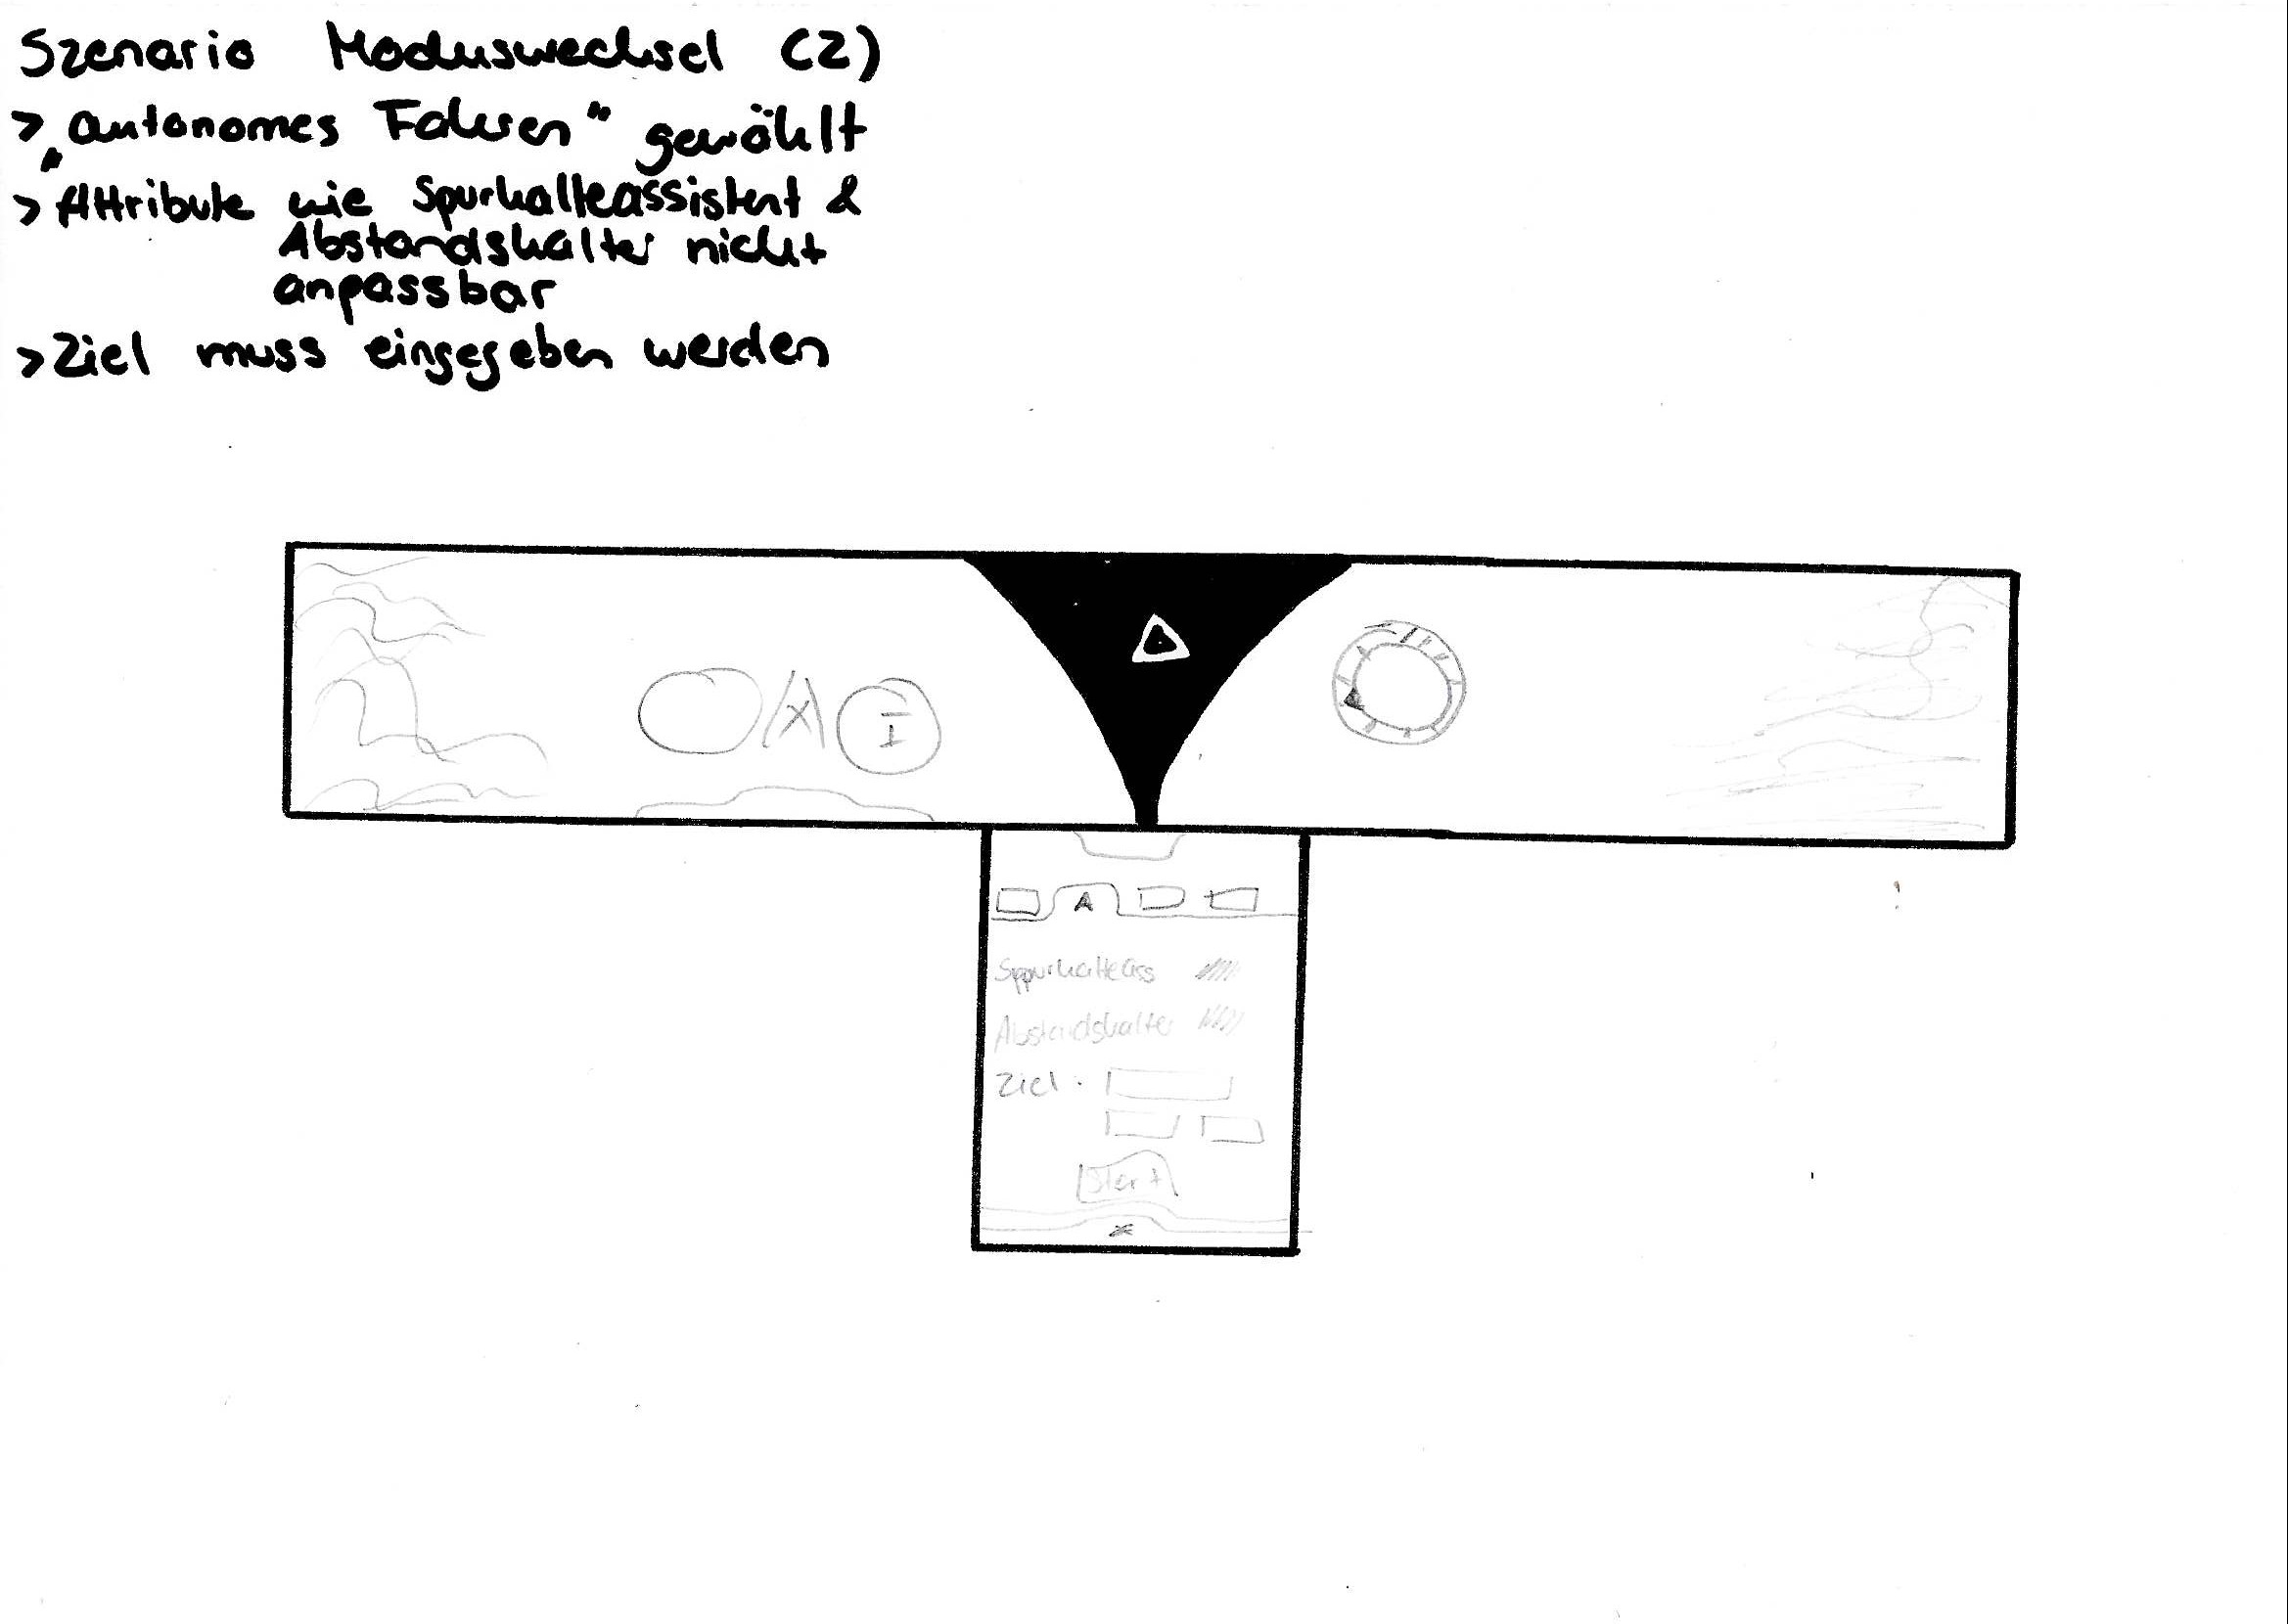 Szenario Moduswechsel (2)
> „autonomes Fahren" gewählt
> Attribute wie Spurhalteassistent &
Abstandshalter nicht
anpassbar
> Ziel muss eingegeben werden
X
I
A
Sppurhalteass
Abstandshalter
Ziel:
Start